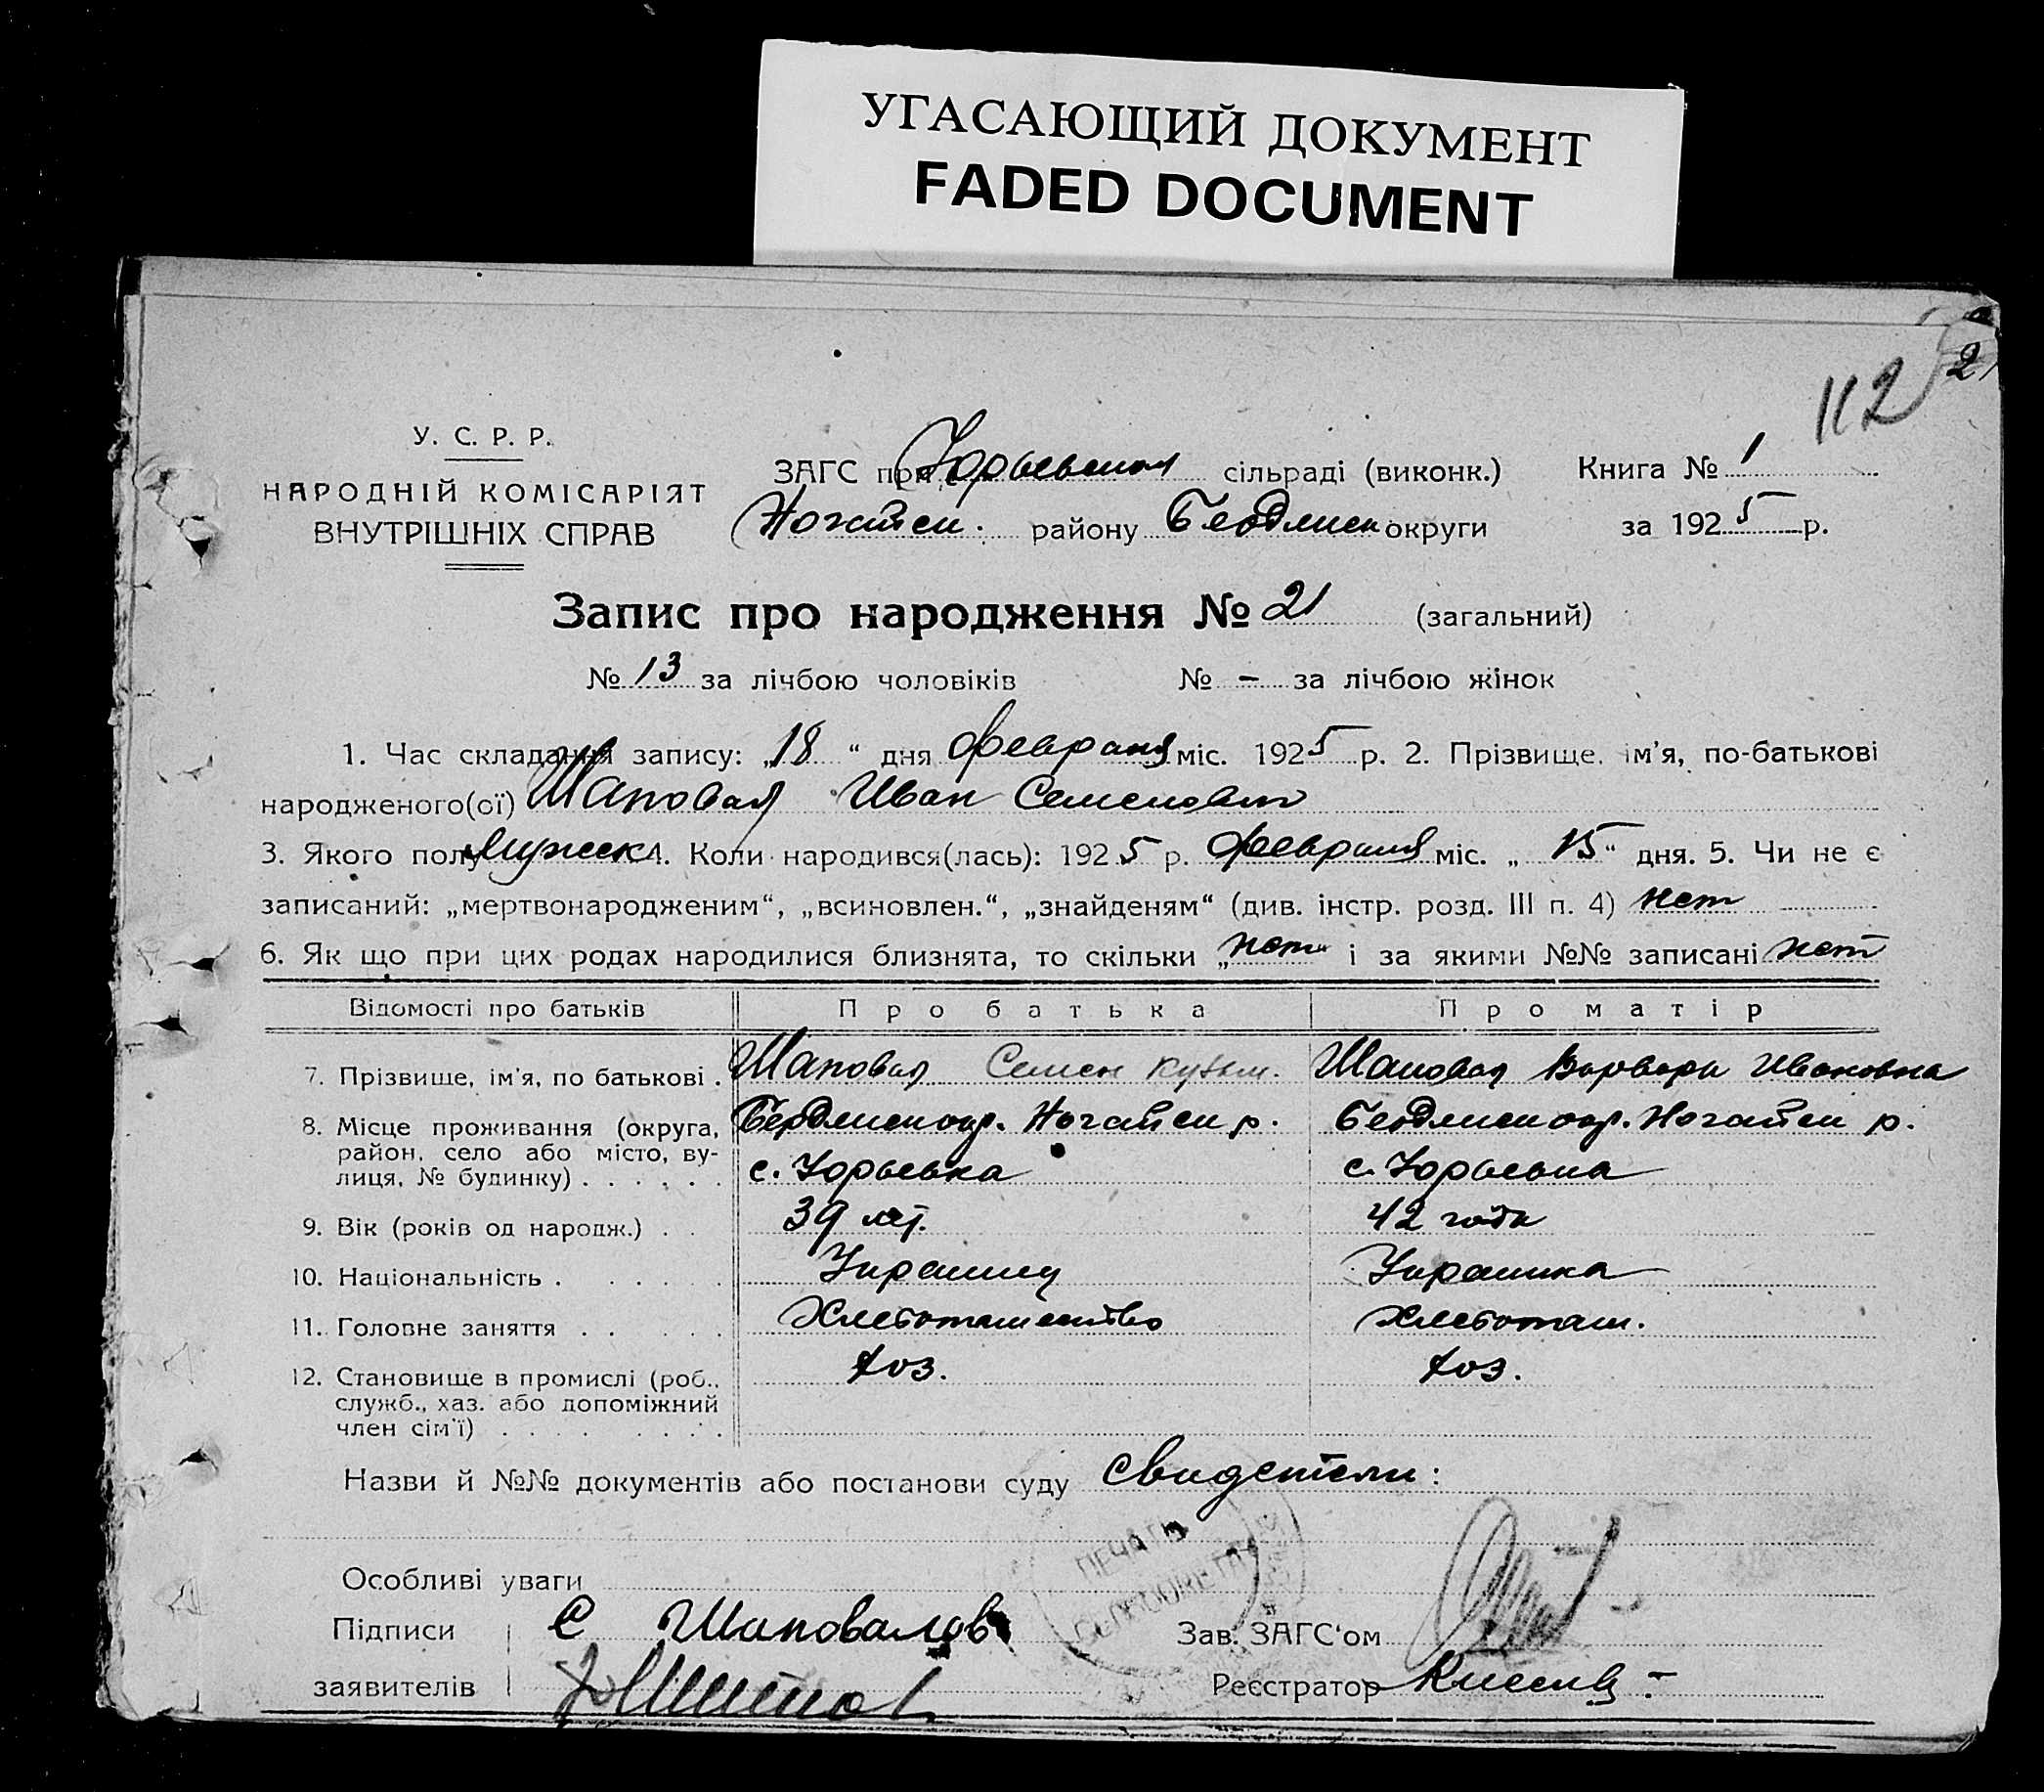 УГАСАЮЩИЙ ДОКУМЕНТ
FADED DOCUMENT
2
112
У. С. Р. Р.
НАРОДНІЙ КОМІСАРІЯТ
ВНУТРІШНІХ СПРАВ
ЗАГС при Юрьевском сільраді (виконк.) Книга № 1
Ногайск. району Бердянск округи за 1925 р.
Запис про народження № 21 (загальний)
№ 13 за лічбою чоловіків № - за лічбою жінок
1. Час складання запису: „18“ дня февраля міс. 1925 р. 2. Прізвище, ім'я, по-батькові
народженого(ої) Шаповал Иван Семенович
3. Якого полу мужск 4. Коли народився(лась): 1925 р. февраля міс. „15“ дня. 5. Чи не є
записаний: „мертвонародженим“, „всиновлен.“, „знайденям“ (див. інстр. розд. III п. 4) нет
6. Як що при цих родах народилися близнята, то скільки „нет“ і за якими №№ записані нет
Відомості про батьків Про батька Про матір
7. Прізвище, ім'я, по батькові . Шаповал Семен Кузьм. Шаповал Варвара Ивановна
8. Місце проживання (округа, Бердянск окр. Ногайск р. Бердянск окр. Ногайск р.
район, село або місто, ву-
лиця, № будинку) . . . . . . с. Юрьевка с. Юрьевка
9. Вік (років од народж.) . . 39 лет. 42 года
10. Національність . . . . . Украинец Украинка
11. Головне заняття . . . . . Хлебопашество Хлебопаш.
12. Становище в промислі (роб., хоз. хоз.
служб., хаз. або допоміжний
член сім'ї) . . . . . . . .
Назви й №№ документів або постанови суду Свидетели:
ПЕЧАТЬ
Особливі уваги
Підписи С Шаповалов Зав. ЗАГС'ом
заявителів Реєстратор